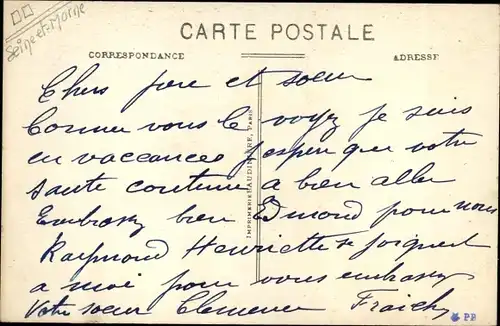 Seine-et-Marne
CARTE POSTALE
CORRESPONDANCE
ADRESSE
Chers frere et soeur
Comme vous le voyez je suis
en vaccances j'espere que votre
sante continue a bien aller
Embrassez bien Edmond pour nous
Raymond Henriette se joignent
a moi pour vous embrasser
Votre soeur Clemence
IMPRIMERIE BAUDINIERE, PARIS
PB